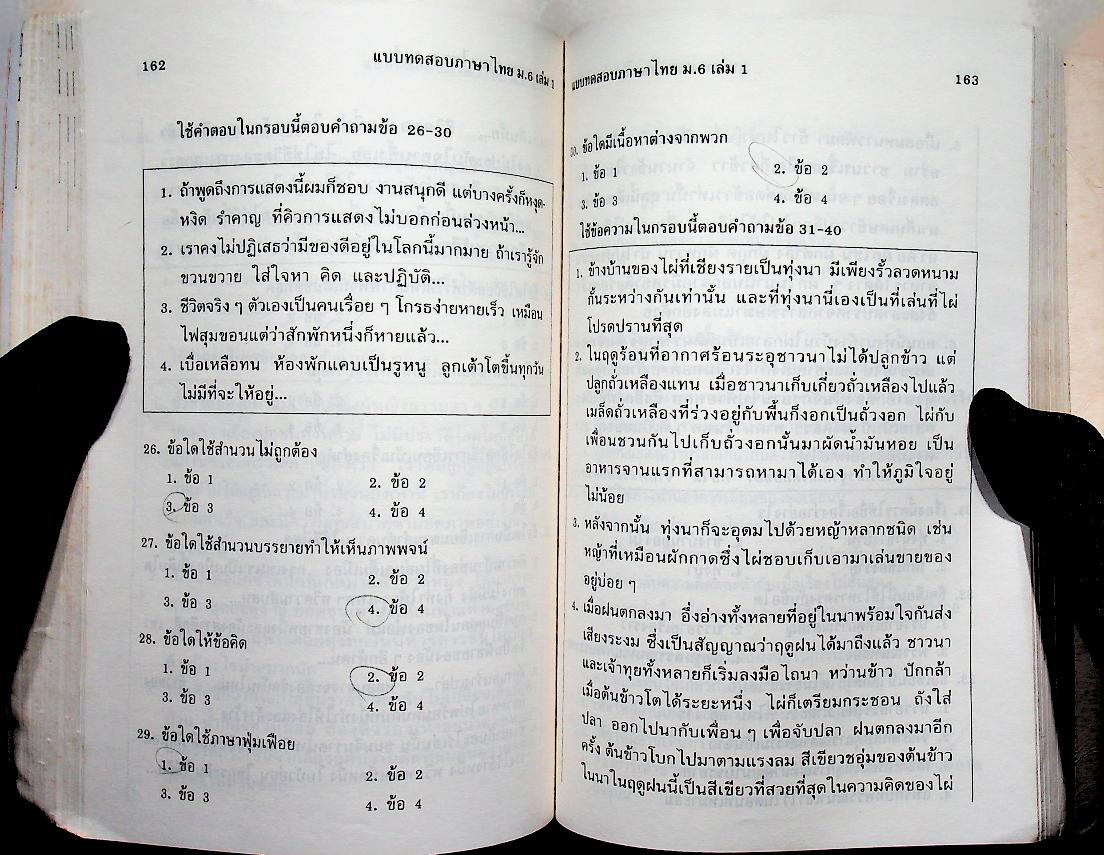 162
แบบทดสอบภาษาไทย ม.6 เล่ม 1
ใช้คำตอบในกรอบนี้ตอบคำถามข้อ 26-30
1. ถ้าพูดถึงการแสดงนี้ผมก็ชอบ งานสนุกดี แต่บางครั้งก็หงุด-
หงิด รำคาญ ที่คิวการแสดงไม่บอกก่อนล่วงหน้า...
2. เราคงไม่ปฏิเสธว่ามีของดีอยู่ในโลกนี้มากมาย ถ้าเรารู้จัก
ขวนขวาย ใส่ใจหา คิด และปฏิบัติ...
3. ชีวิตจริง ๆ ตัวเองเป็นคนเรื่อย ๆ โกรธง่ายหายเร็ว เหมือน
ไฟสุมขอนแต่ว่าสักพักหนึ่งก็หายแล้ว...
4. เบื่อเหลือทน ห้องพักแคบเป็นรูหนู ลูกเต้าโตขึ้นทุกวัน
ไม่มีที่จะให้อยู่...
26. ข้อใดใช้สำนวนไม่ถูกต้อง
1. ข้อ 1
2. ข้อ 2
3. ข้อ 3
4. ข้อ 4
27. ข้อใดใช้สำนวนบรรยายทำให้เห็นภาพพจน์
1. ข้อ 1
2. ข้อ 2
3. ข้อ 3
4. ข้อ 4
28. ข้อใดให้ข้อคิด
1. ข้อ 1
2. ข้อ 2
3. ข้อ 3
4. ข้อ 4
29. ข้อใดใช้ภาษาฟุ่มเฟือย
1. ข้อ 1
2. ข้อ 2
3. ข้อ 3
4. ข้อ 4
แบบทดสอบภาษาไทย ม.6 เล่ม 1
163
30. ข้อใดมีเนื้อหาต่างจากพวก
1. ข้อ 1
2. ข้อ 2
3. ข้อ 3
4. ข้อ 4
ใช้ข้อความในกรอบนี้ตอบคำถามข้อ 31-40
1. ข้างบ้านของไผ่ที่เชียงรายเป็นทุ่งนา มีเพียงรั้วลวดหนาม
กั้นระหว่างกันเท่านั้น และที่ทุ่งนานี้เองเป็นที่เล่นที่ไผ่
โปรดปรานที่สุด
2. ในฤดูร้อนที่อากาศร้อนระอุชาวนาไม่ได้ปลูกข้าว แต่
ปลูกถั่วเหลืองแทน เมื่อชาวนาเก็บเกี่ยวถั่วเหลืองไปแล้ว
เมล็ดถั่วเหลืองที่ร่วงอยู่กับพื้นก็งอกเป็นถั่วงอก ไผ่กับ
เพื่อนชวนกันไปเก็บถั่วงอกนั้นมาผัดน้ำมันหอย เป็น
อาหารจานแรกที่สามารถหามาได้เอง ทำให้ภูมิใจอยู่
ไม่น้อย
3. หลังจากนั้น ทุ่งนาก็จะอุดมไปด้วยหญ้าหลากชนิด เช่น
หญ้าที่เหมือนผักกาดซึ่งไผ่ชอบเก็บเอามาเล่นขายของ
อยู่บ่อย ๆ
4. เมื่อฝนตกลงมา อึ่งอ่างทั้งหลายที่อยู่ในนาพร้อมใจกันส่ง
เสียงระงม ซึ่งเป็นสัญญาณว่าฤดูฝนได้มาถึงแล้ว ชาวนา
และเจ้าทุยทั้งหลายก็เริ่มลงมือไถนา หว่านข้าว ปักกล้า
เมื่อต้นข้าวโตได้ระยะหนึ่ง ไผ่ก็เตรียมกระชอน ถังใส่
ปลา ออกไปนากับเพื่อน ๆ เพื่อจับปลา ฝนตกลงมาอีก
ครั้ง ต้นข้าวโบกไปมาตามแรงลม สีเขียวชอุ่มของต้นข้าว
ในนาในฤดูฝนนี้เป็นสีเขียวที่สวยที่สุดในความคิดของไผ่